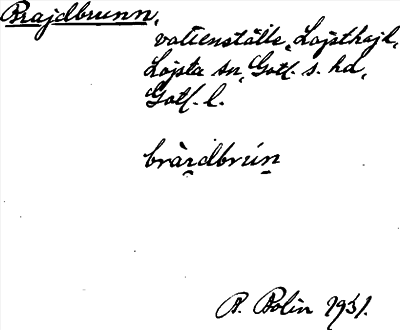 Brajdbrunn,
vattenställe, Lojsthajd,
Lojsta sn, Gotl. s. hd,
Gotl. l.
bràrdbrún
R. Bolin 1931.